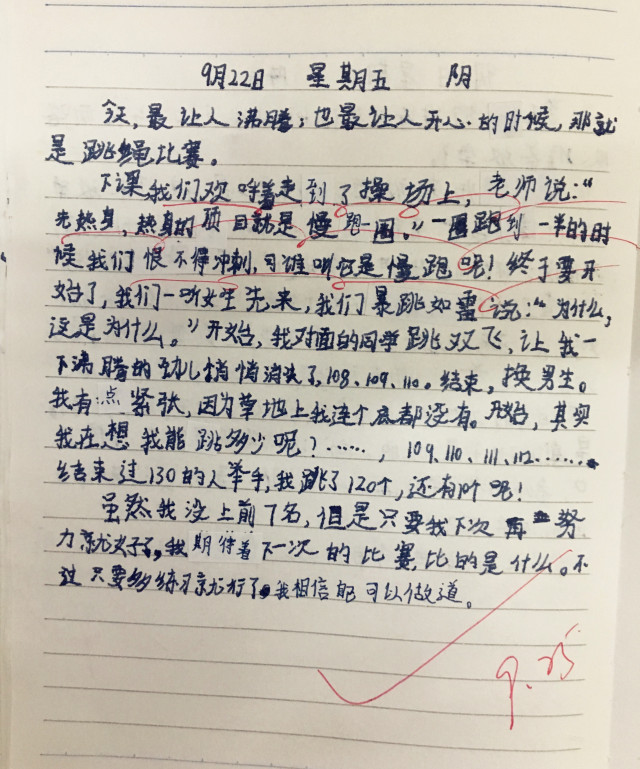 9月22日 星期五 阴
今天,最让人沸腾;也最让人开心的时候,那就
是跳绳比赛。
下课我们欢呼着走到了操场上,老师说:“
先热身,热身的项目就是慢跑一圈。”一圈跑到一半的时
候我们恨不得冲刺,可谁叫它是慢跑呢!终于要开
始了,我们一听女生先来,我们暴跳如雷说:“为什么,
这是为什么。”开始,我对面的同学跳双飞,让我一
下沸腾的劲儿悄悄消失了,108、109、110。结束,换男生。
我有点紧张,因为草地上我连个底都没有。开始,其实
我在想我能跳多少呢?……,109、110、111、112……。
结束过130的人举手,我跳了120个,还有 呢!
虽然我没上前7名,但是只要我下次再努
力就好了,我期待着下一次的比赛,比的是什么。不
过只要多练习就行了。我相信能可以做道。
9.25